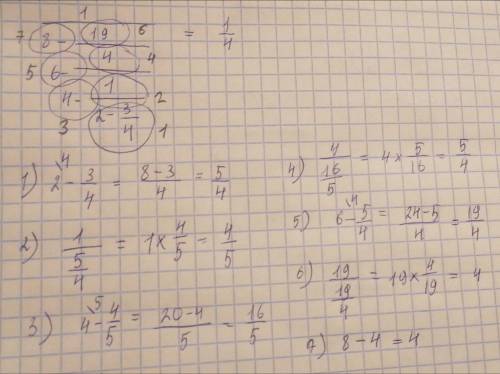 1
7 8 - 19 6 = 1/4
5 6 - 4 4
4 - 1 2
3 2 - 3/4 1
1) 2 - 3/4 = 8-3/4 = 5/4
2) 1/5/4 = 1 × 4/5 = 4/5
3) 4 - 4/5 = 20-4/5 = 16/5
4) 4/16/5 = 4 × 5/16 = 5/4
5) 6 - 5/4 = 24-5/4 = 19/4
6) 19/19/4 = 19 × 4/19 = 4
7) 8 - 4 = 4